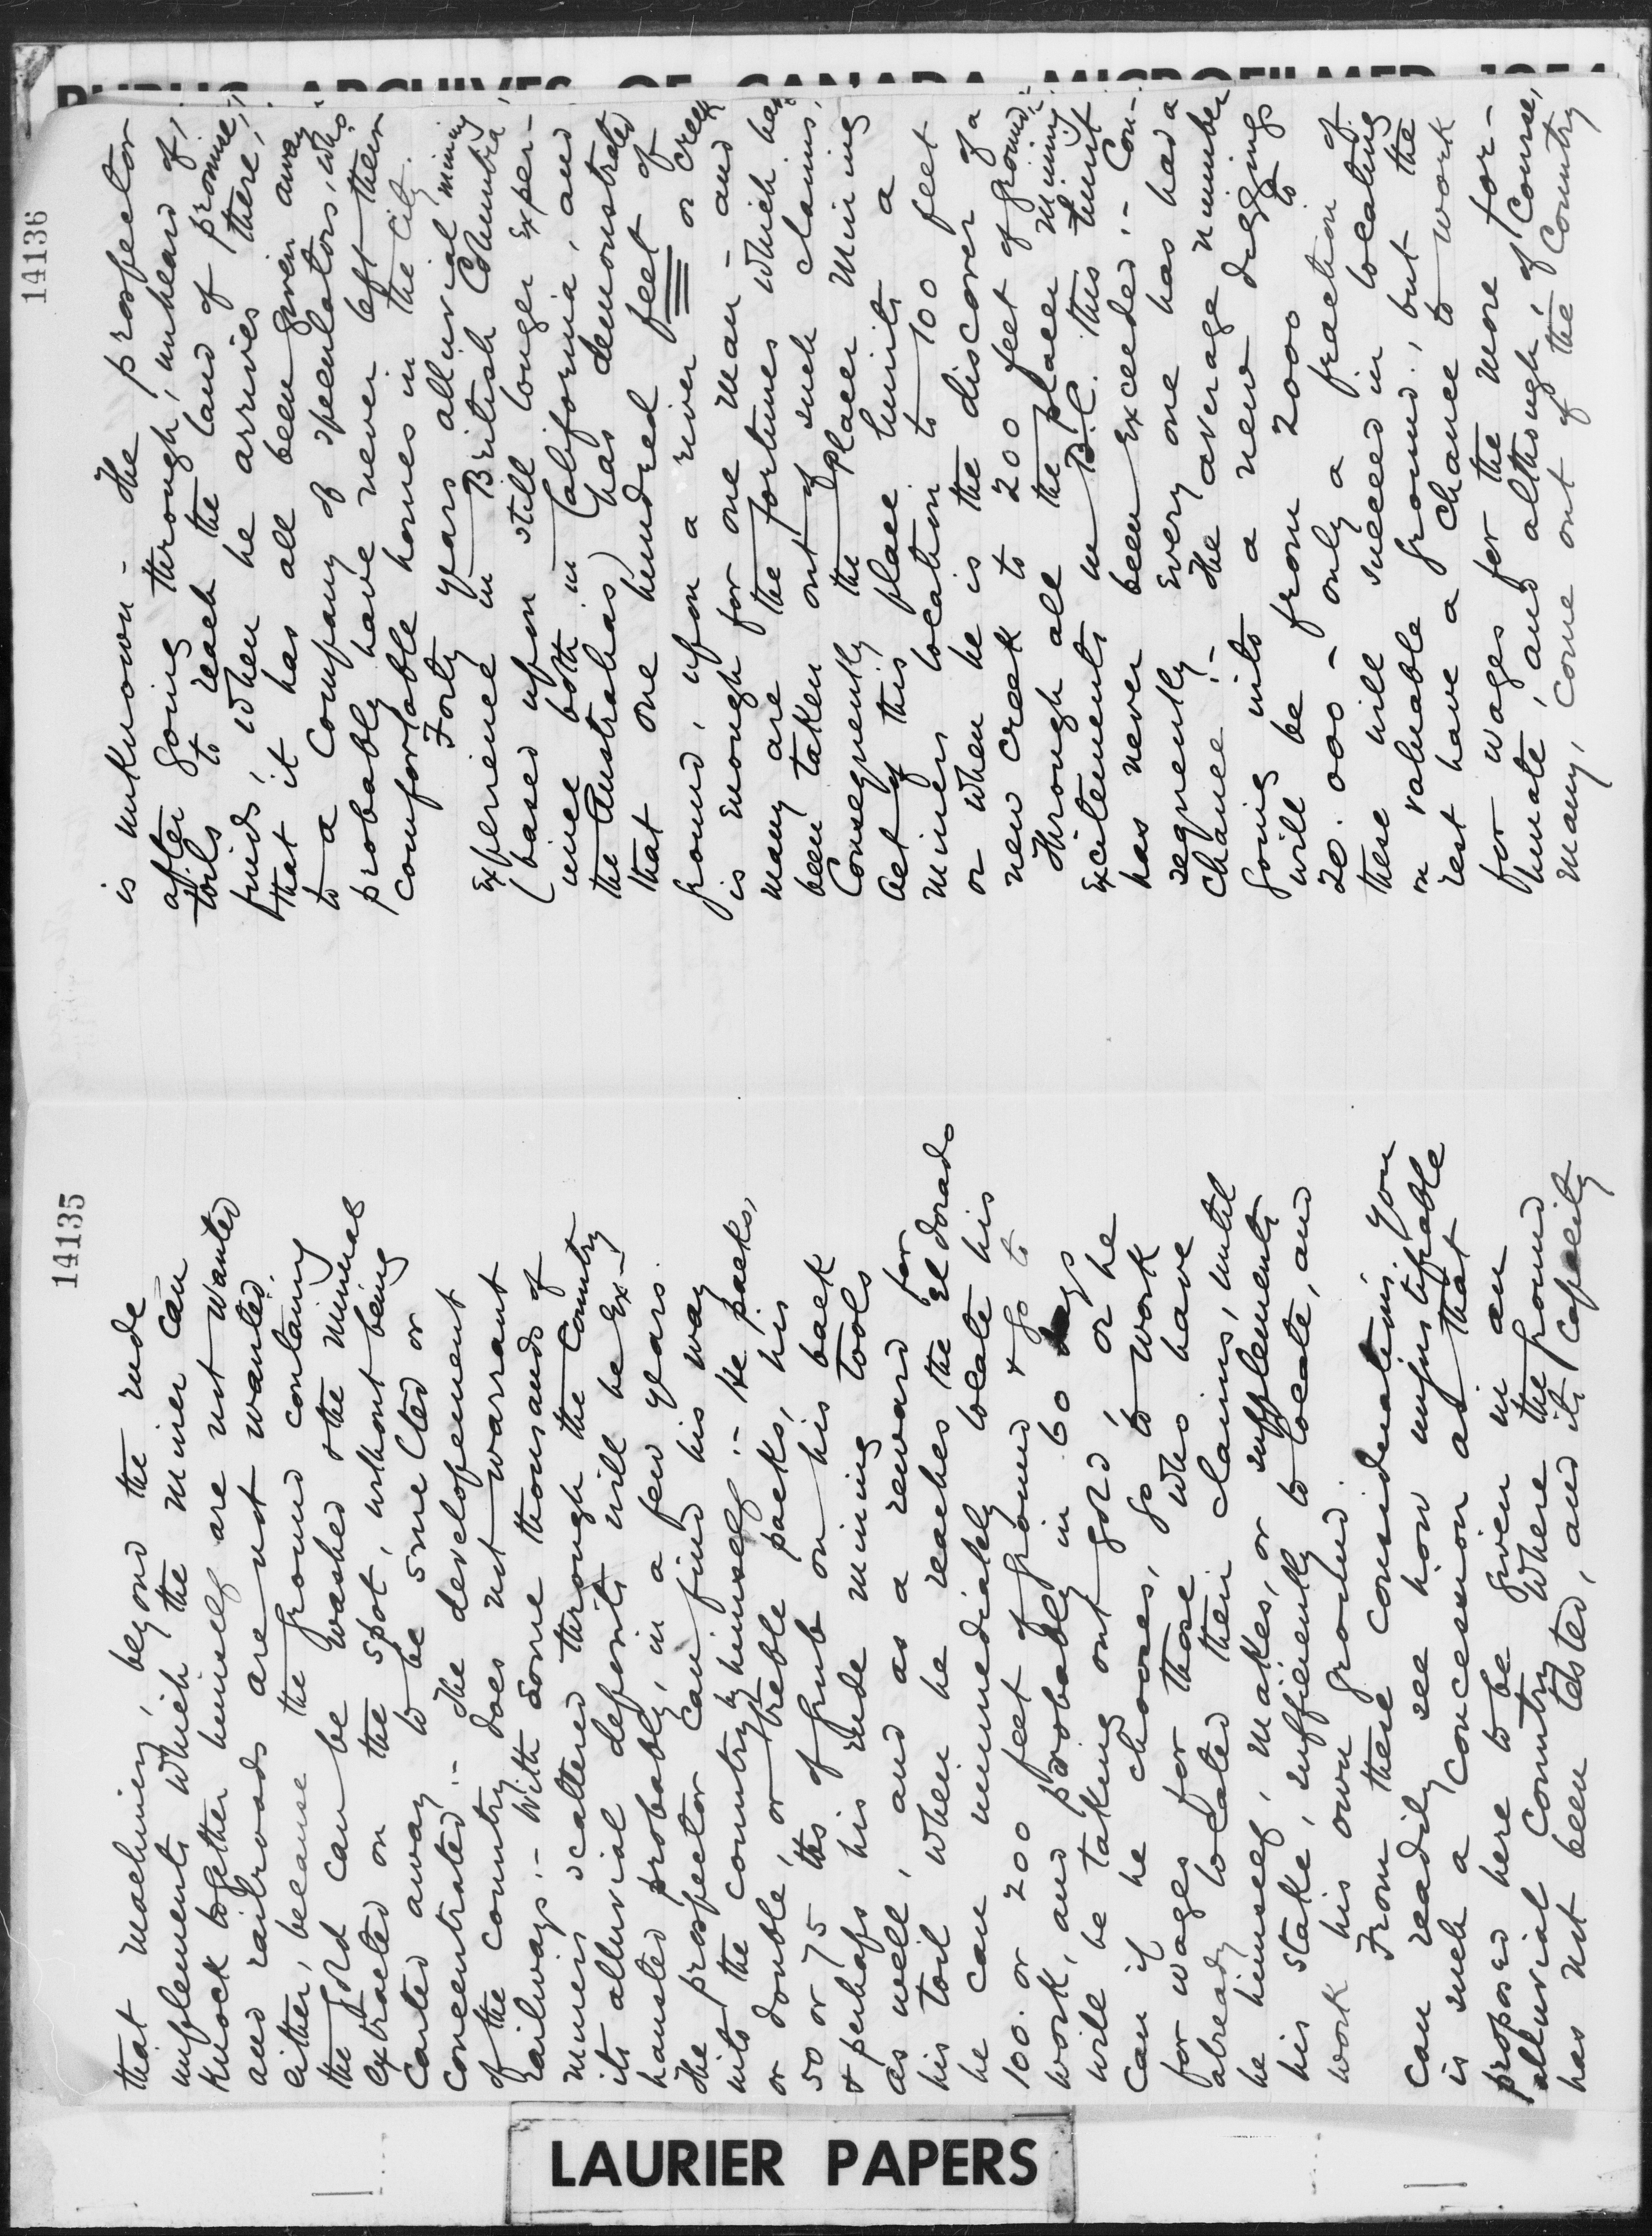 PUBLIC ARCHIVES OF CANADA MICROFILMED
14135
that machinery, beyond the rude
implements which the miner can
knock together himself are not wanted
and railroads are not wanted.
either, because the ground containing
the gold can be washed & the mineral
extracted on the spot, without being
carted away to be smelted or
concentrated :- The developement
of the country does not warrant
railways :- With some thousands of
miners scattered through the country
its alluvial deposits will be ex-
hausted probably, in a few years.
The prospector can find his way
into the country by himself :- He packs,
or double, or treble packs, his
50 or 75 lbs of grub on his back
& perhaps his rude mining tools
as well, and as a reward for
his toil, when he reaches the El dorado
he can immediately locate his
100. or 200 feet of ground & go to
work, and probably in 60 days
will be taking out gold, or he
can if he chooses, go to work
for wages for those who have
already located their claims, until
he himself, makes, or supplements
his stake, sufficiently to locate, and
work his own ground.
From these considerations, you
can readily see how unjustifiable
is such a concession as that
proposed here to be given in an
alluvial country where the ground
has not been tested, and its capacity
14136
is unknown - The prospector
after going through, unheard of,
toils to reach the land of promise,
finds, when he arrives there,
that it has all been given away
to a company of speculators, who
probably have never left their
comfortable homes in the city.
Forty years alluvial mining
experience in British Columbia,
(based upon still longer exper-
ience both in California, and
the Australias) has demonstrated
that one hundred feet of
ground, upon a river or creek
is enough for one man - and
many are the fortunes which have
been taken out of such claims,
Consequently the placer mining
act of this place limits a
miners location to 100 feet
or when he is the discoverer of a
new creek to 200 feet of ground :-
Through all the placer mining
excitements in B.C. this limit
has never been exceeded :- Con-
sequently every one has had a
chance :- The average number
going into a new diggings
will be from 2000 to
20.000 - only a fraction of
these will succeed in locating
on valuable ground, but the
rest have a chance to work
for wages for the more for-
tunate, and although, of course,
many, come out of the country
LAURIER PAPERS